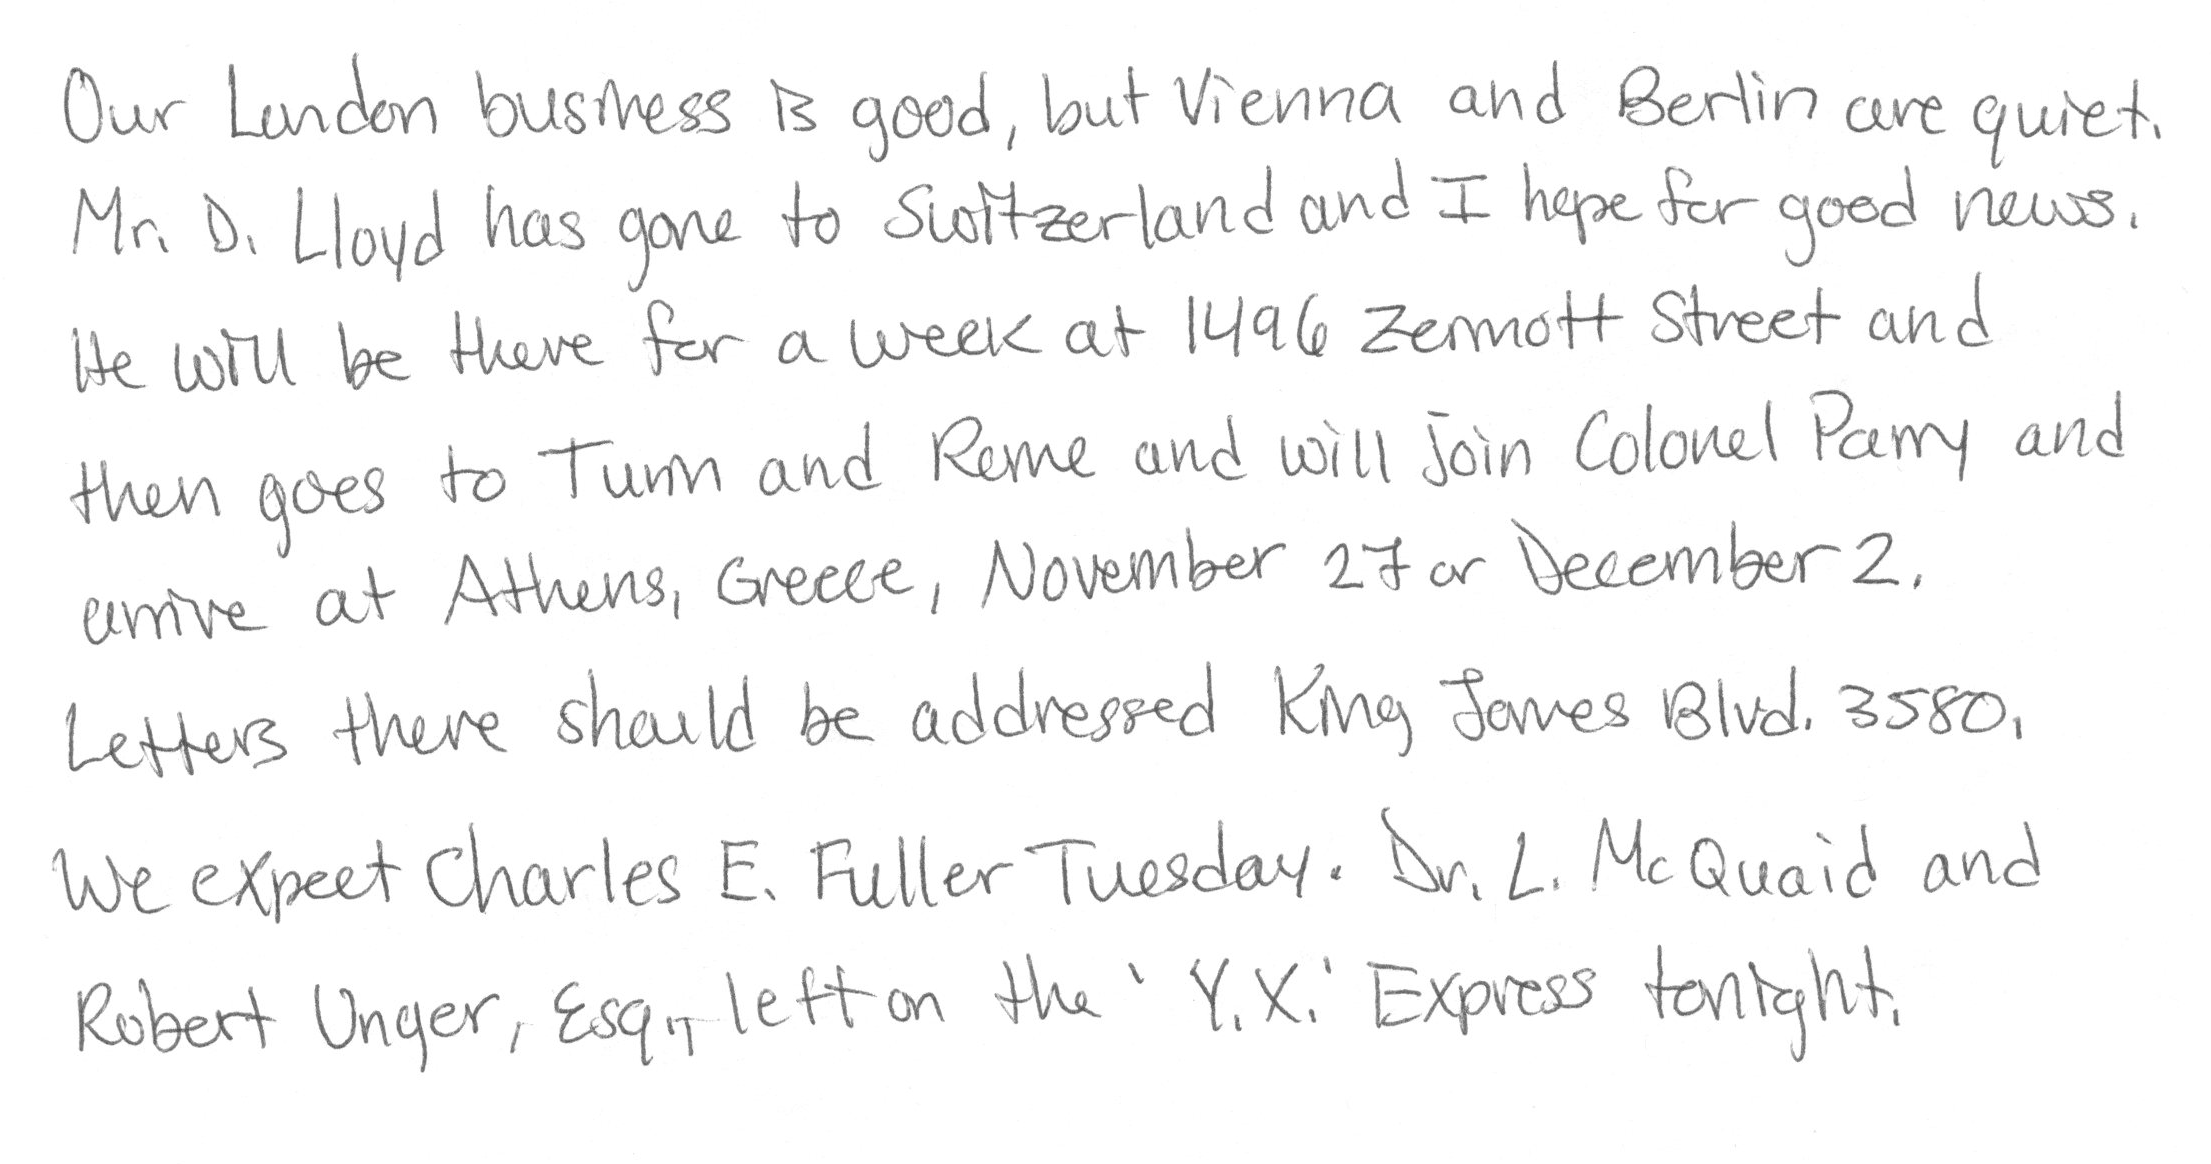 Our London business is good, but Vienna and Berlin are quiet.
Mr. D. Lloyd has gone to Switzerland and I hope for good news.
He will be there for a week at 1496 Zermott Street and
then goes to Turin and Rome and will join Colonel Parry and
arrive at Athens, Greece, November 27 or December 2.
Letters there should be addressed King James Blvd. 3580.
We expect Charles E. Fuller Tuesday. Dr. L. McQuaid and
Robert Unger, Esq., left on the 'Y.X.' Express tonight.